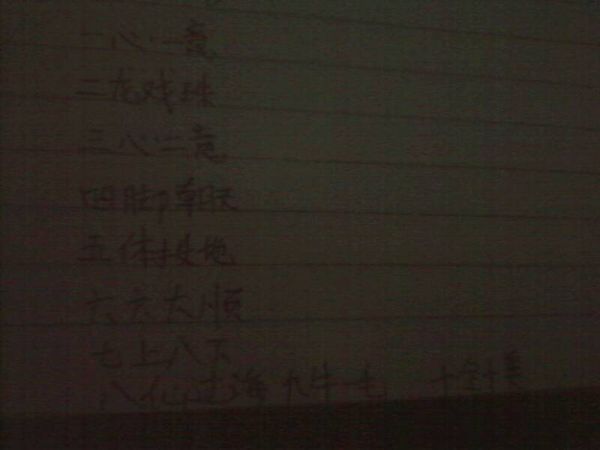 一心一意
二龙戏珠
三心二意
四脚朝天
五体投地
六六大顺
七上八下
八仙过海 九牛一毛 十全十美